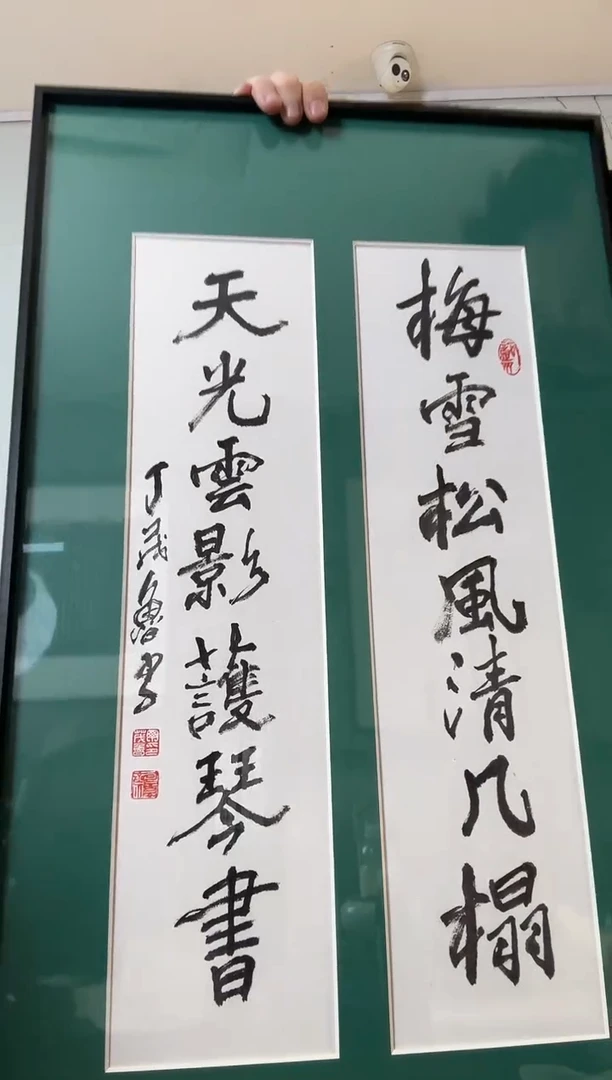 梅雪松風清几榻
天光雲影護琴書
丁茂魯書